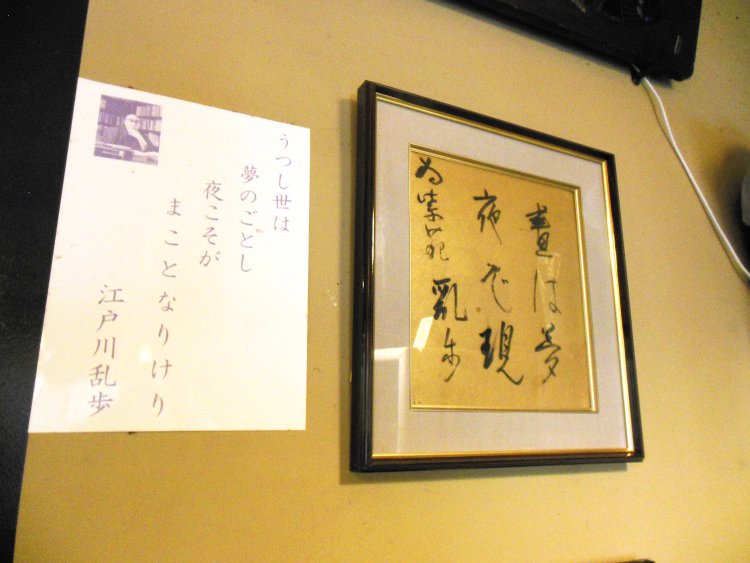 うつし世は
夢のごとし
夜こそが
まことなりけり
江戸川乱歩
晝は夢
夜ぞ現
亂歩